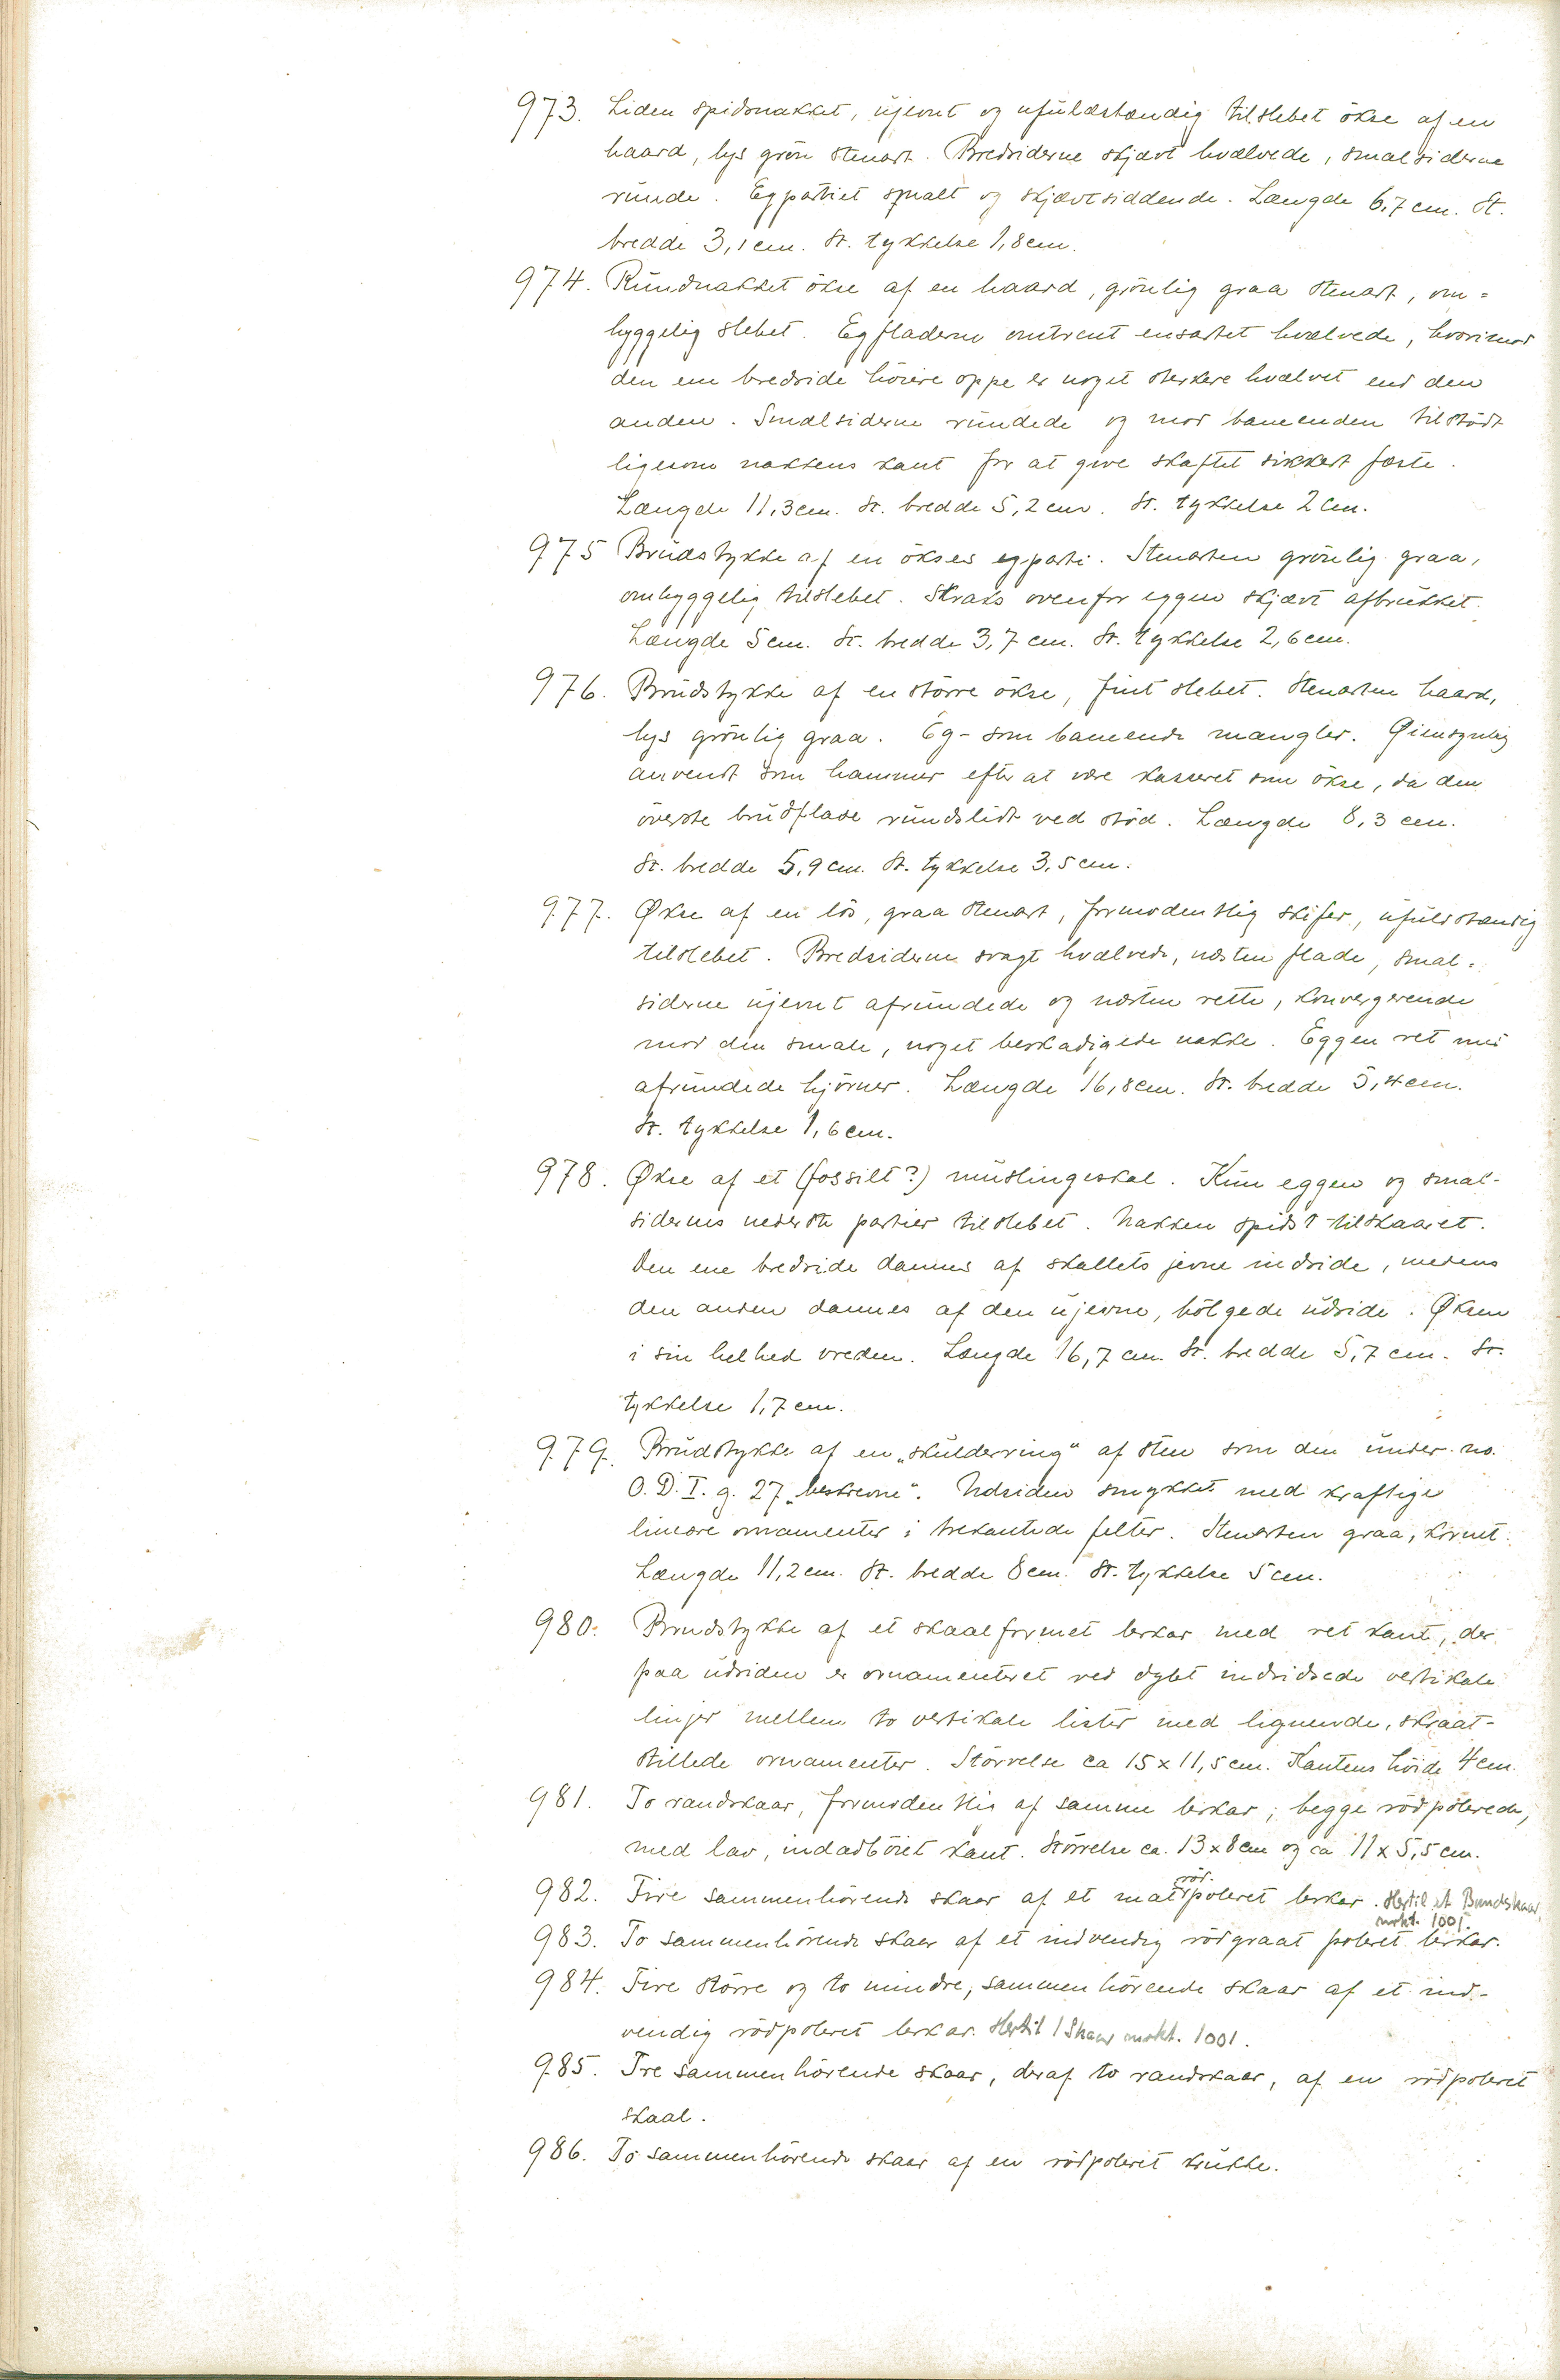 973. Liden spidsnakket, ujevnt og ufuldstændig tilslebet økse af en
haard, lys grøn stenart. Bredsiderne skjævt hvælvede, smalsiderne
runde. Egpartiet smalt og skjævtsiddende. Længde 6,7 cm. St.
bredde 3,1 cm. St. tykkelse 1,8 cm.
974. Rundnakket økse af en haard, grønlig graa stenart, om=
hyggelig slebet. Egfladerne omtrent ensartet hvælvede, hvorimod
den ene bredside høiere oppe er noget sterkere hvælvet end den
anden. Smalsiderne rundede og mod baneenden tilstødt
ligesom nakkens kant for at give skaftet sikkert fæste.
Længde 11,3 cm. St. bredde 5,2 cm. St. tykkelse 2 cm.
975 Brudstykke af en økses egparti. Stenarten grønlig graa,
omhyggelig tilslebet. Straks ovenfor eggen skjævt afbrukket.
Længde 5 cm. St. bredde 3,7 cm. St. tykkelse 2,6 cm.
976. Brudstykke af en større økse, fint slebet. Stenarten haard,
lys grønlig graa. Eg- som baneende mangler. Øiensynlig
anvendt som hammer efter at være kasseret som økse, da den
øverste brudflade rundslidt ved stød. Længde 8,3 cm.
St. bredde 5,9 cm. St. tykkelse 3,5 cm.
977. Økse af en løs, graa stenart, formodentlig skifer, ufuldstændig
tilslebet. Bredsiderne svagt hvælvede, næsten flade, smal=
siderne ujevnt afrundede og næsten rette, konvergerende
mod den smale, noget beskadigede nakke. Eggen ret med
afrundede hjørner. Længde 16,8 cm. St. bredde 5,4 cm.
St. tykkelse 1,6 cm.
978. Økse af et (fossilt?) muslingeskal. Kun eggen og smal-
sidernes nederste partier tilslebet. Nakken spidst tilskaaret.
Den ene bredside dannes af skallets jevne indside, medens
den anden dannes af den ujevne, bølgede udside. Øksen
i sin helhed vreden. Længde 16,7 cm. St. bredde 5,7 cm. St.
tykkelse 1,7 cm.
979. Brudstykke af en „skulderring“ af sten som den under no.
O. D. I. g. 27 „beskrevne“. Udsiden smykket med kraftige
lineære ornamenter i trekantede felter. Stenarten graa, kornet.
Længde 11,2 cm. St. bredde 8 cm. St. tykkelse 5 cm.
980. Brudstykke af et skaalformet lerkar med ret kant, der
paa udsiden er ornamenteret ved dybt indridsede vertikale
linjer mellem to vertikale lister med lignende, skraat-
stillede ornamenter. Størrelse ca 15 x 11,5 cm. Kantens høide 4 cm.
981. To randskaar, formodentlig af samme lerkar; begge rødpolerede,
med lav, indadbøiet kant. Størrelse ca. 13 x 8 cm og ca 11 x 5,5 cm.
982. Fire sammenhørende skaar af et mat rødpoleret lerkar. Hertil et Bundskaar,
mrkt. 1001.
983. To sammenhørende skaar af et indvendig rødgraat poleret lerkar.
984. Fire større og to mindre, sammenhørende skaar af et ind-
vendig rødpoleret lerkar. Hertil 1 Skaar mrkt. 1001.
985. Tre sammenhørende skaar, deraf to randskaar, af en rødpoleret
skaal.
986. To sammenhørende skaar af en rødpoleret krukke.